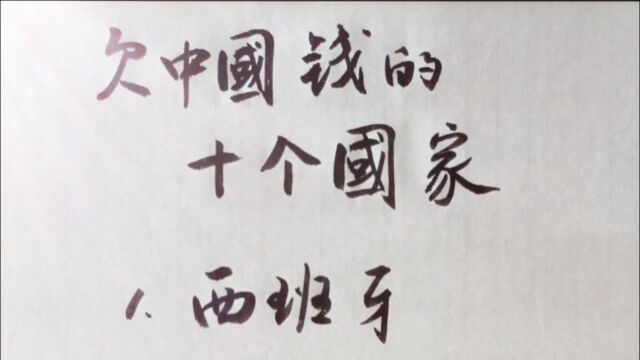 欠中國钱的
十个國家
1. 西班牙